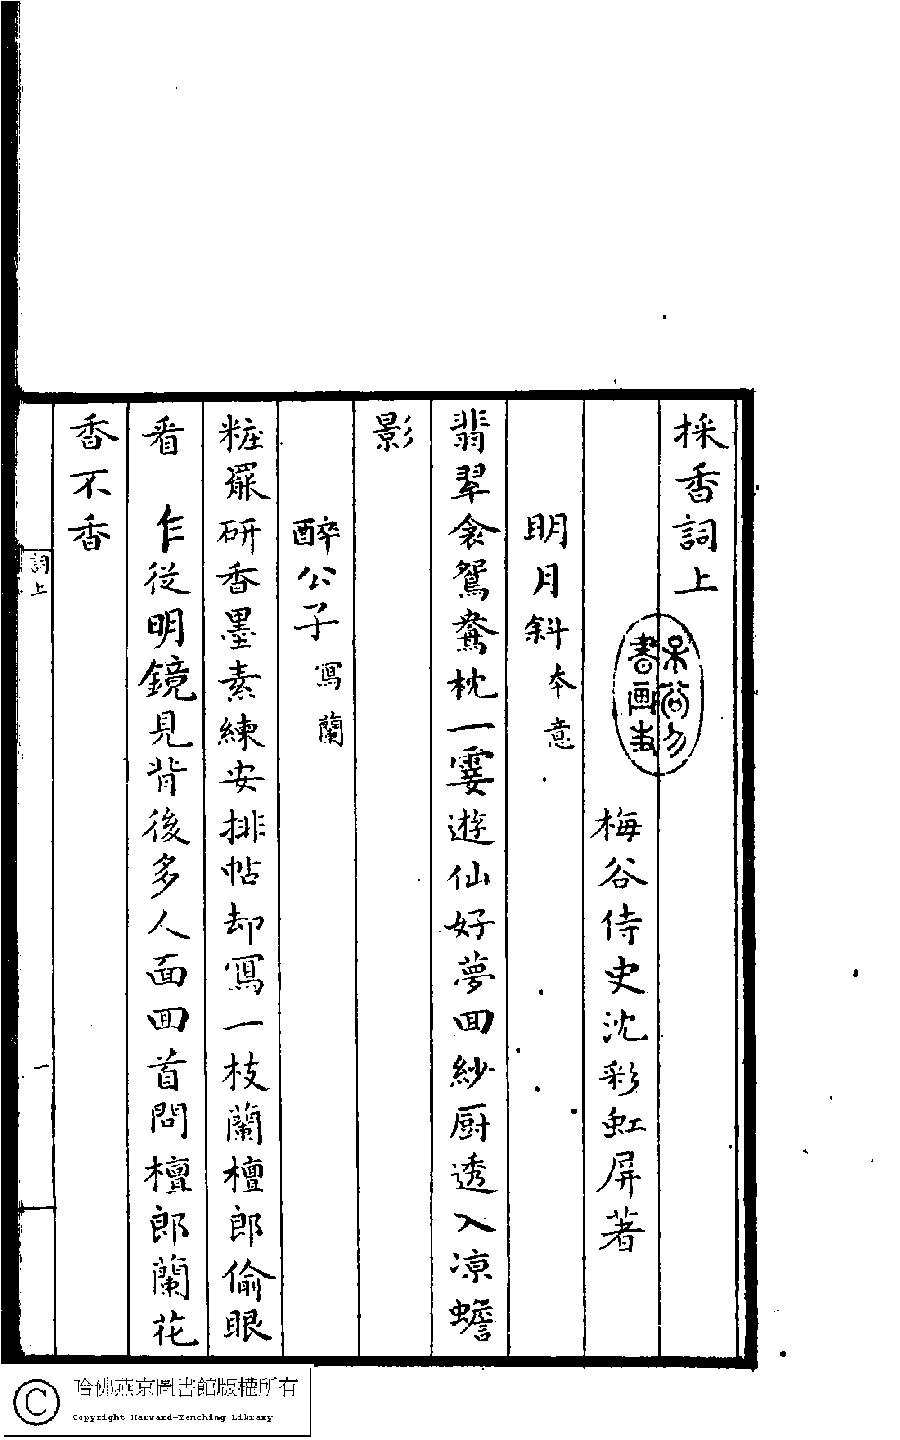 採香詞上
梅谷侍史沈彩虹屏著
明月斜本意
翡翠衾鴛鴦枕一霎遊仙好夢回紗厨透入凉蟾
影
醉公子寫蘭
粧罷研香墨素練安排帖却寫一枝蘭檀郎偷眼
看 乍從明鏡見背後多人面回首問檀郎蘭花
香不香
詞上
一
哈佛燕京圖書館版權所有
Copyright Harvard-Yenching Library